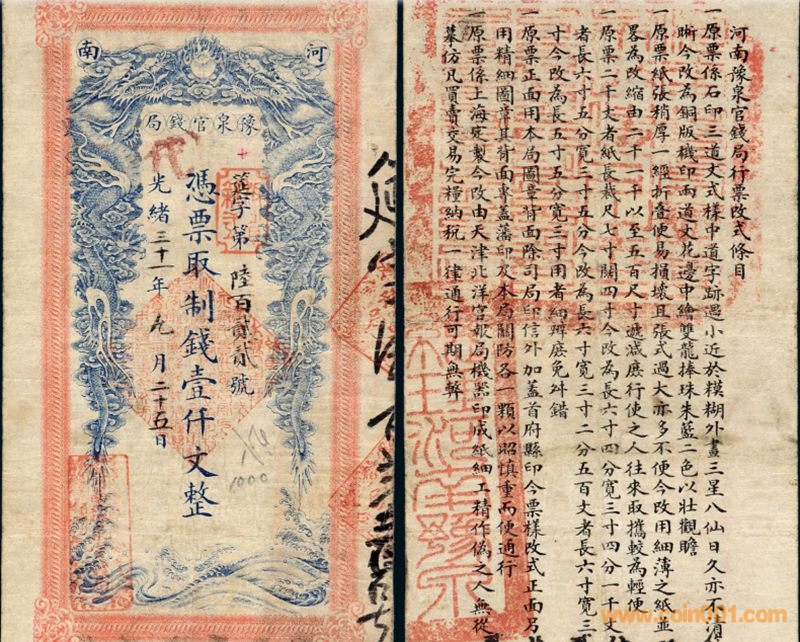 河南
豫泉官錢局
筵字第陸百貳貳號
憑票取制錢壹仟文整
光緒三十一年九月二十五日
1000
河南豫泉官錢局行票改式條目
一原票係石印三道文式樣中道字跡過小近於糢糊外畫三星八仙日久亦不
晰今改為銅版機印兩道文花邊中繪雙龍捧珠朱藍二色以壯觀瞻
一原票紙張稍厚一經折疊便易損壞且張式過大亦多不便今改用細薄之紙並
畧為改縮由二千一千以至五百尺寸遞減庶行使之人往來取攜較為輕便
一原票二千文者紙長裁尺七寸闊四寸今改為長六寸四分寬三寸四分一千文
者長六寸五分寬三寸五分今改為長六寸寬三寸二分五百文者長六寸寬三
寸今改為長五寸五分寬三寸用者細辨庶免舛錯
一原票正面用本局圖章背面除司局印信外加蓋首府縣印今票樣改式正面另
用精細圖章其背面專蓋藩印及本局關防各一顆以昭慎重而便通行
一原票係上海定製今改由天津北洋官報局機器印成紙細工精作偽之人無從
摹仿凡買賣交易完糧納稅一律通行可期無弊
www.coin001.com